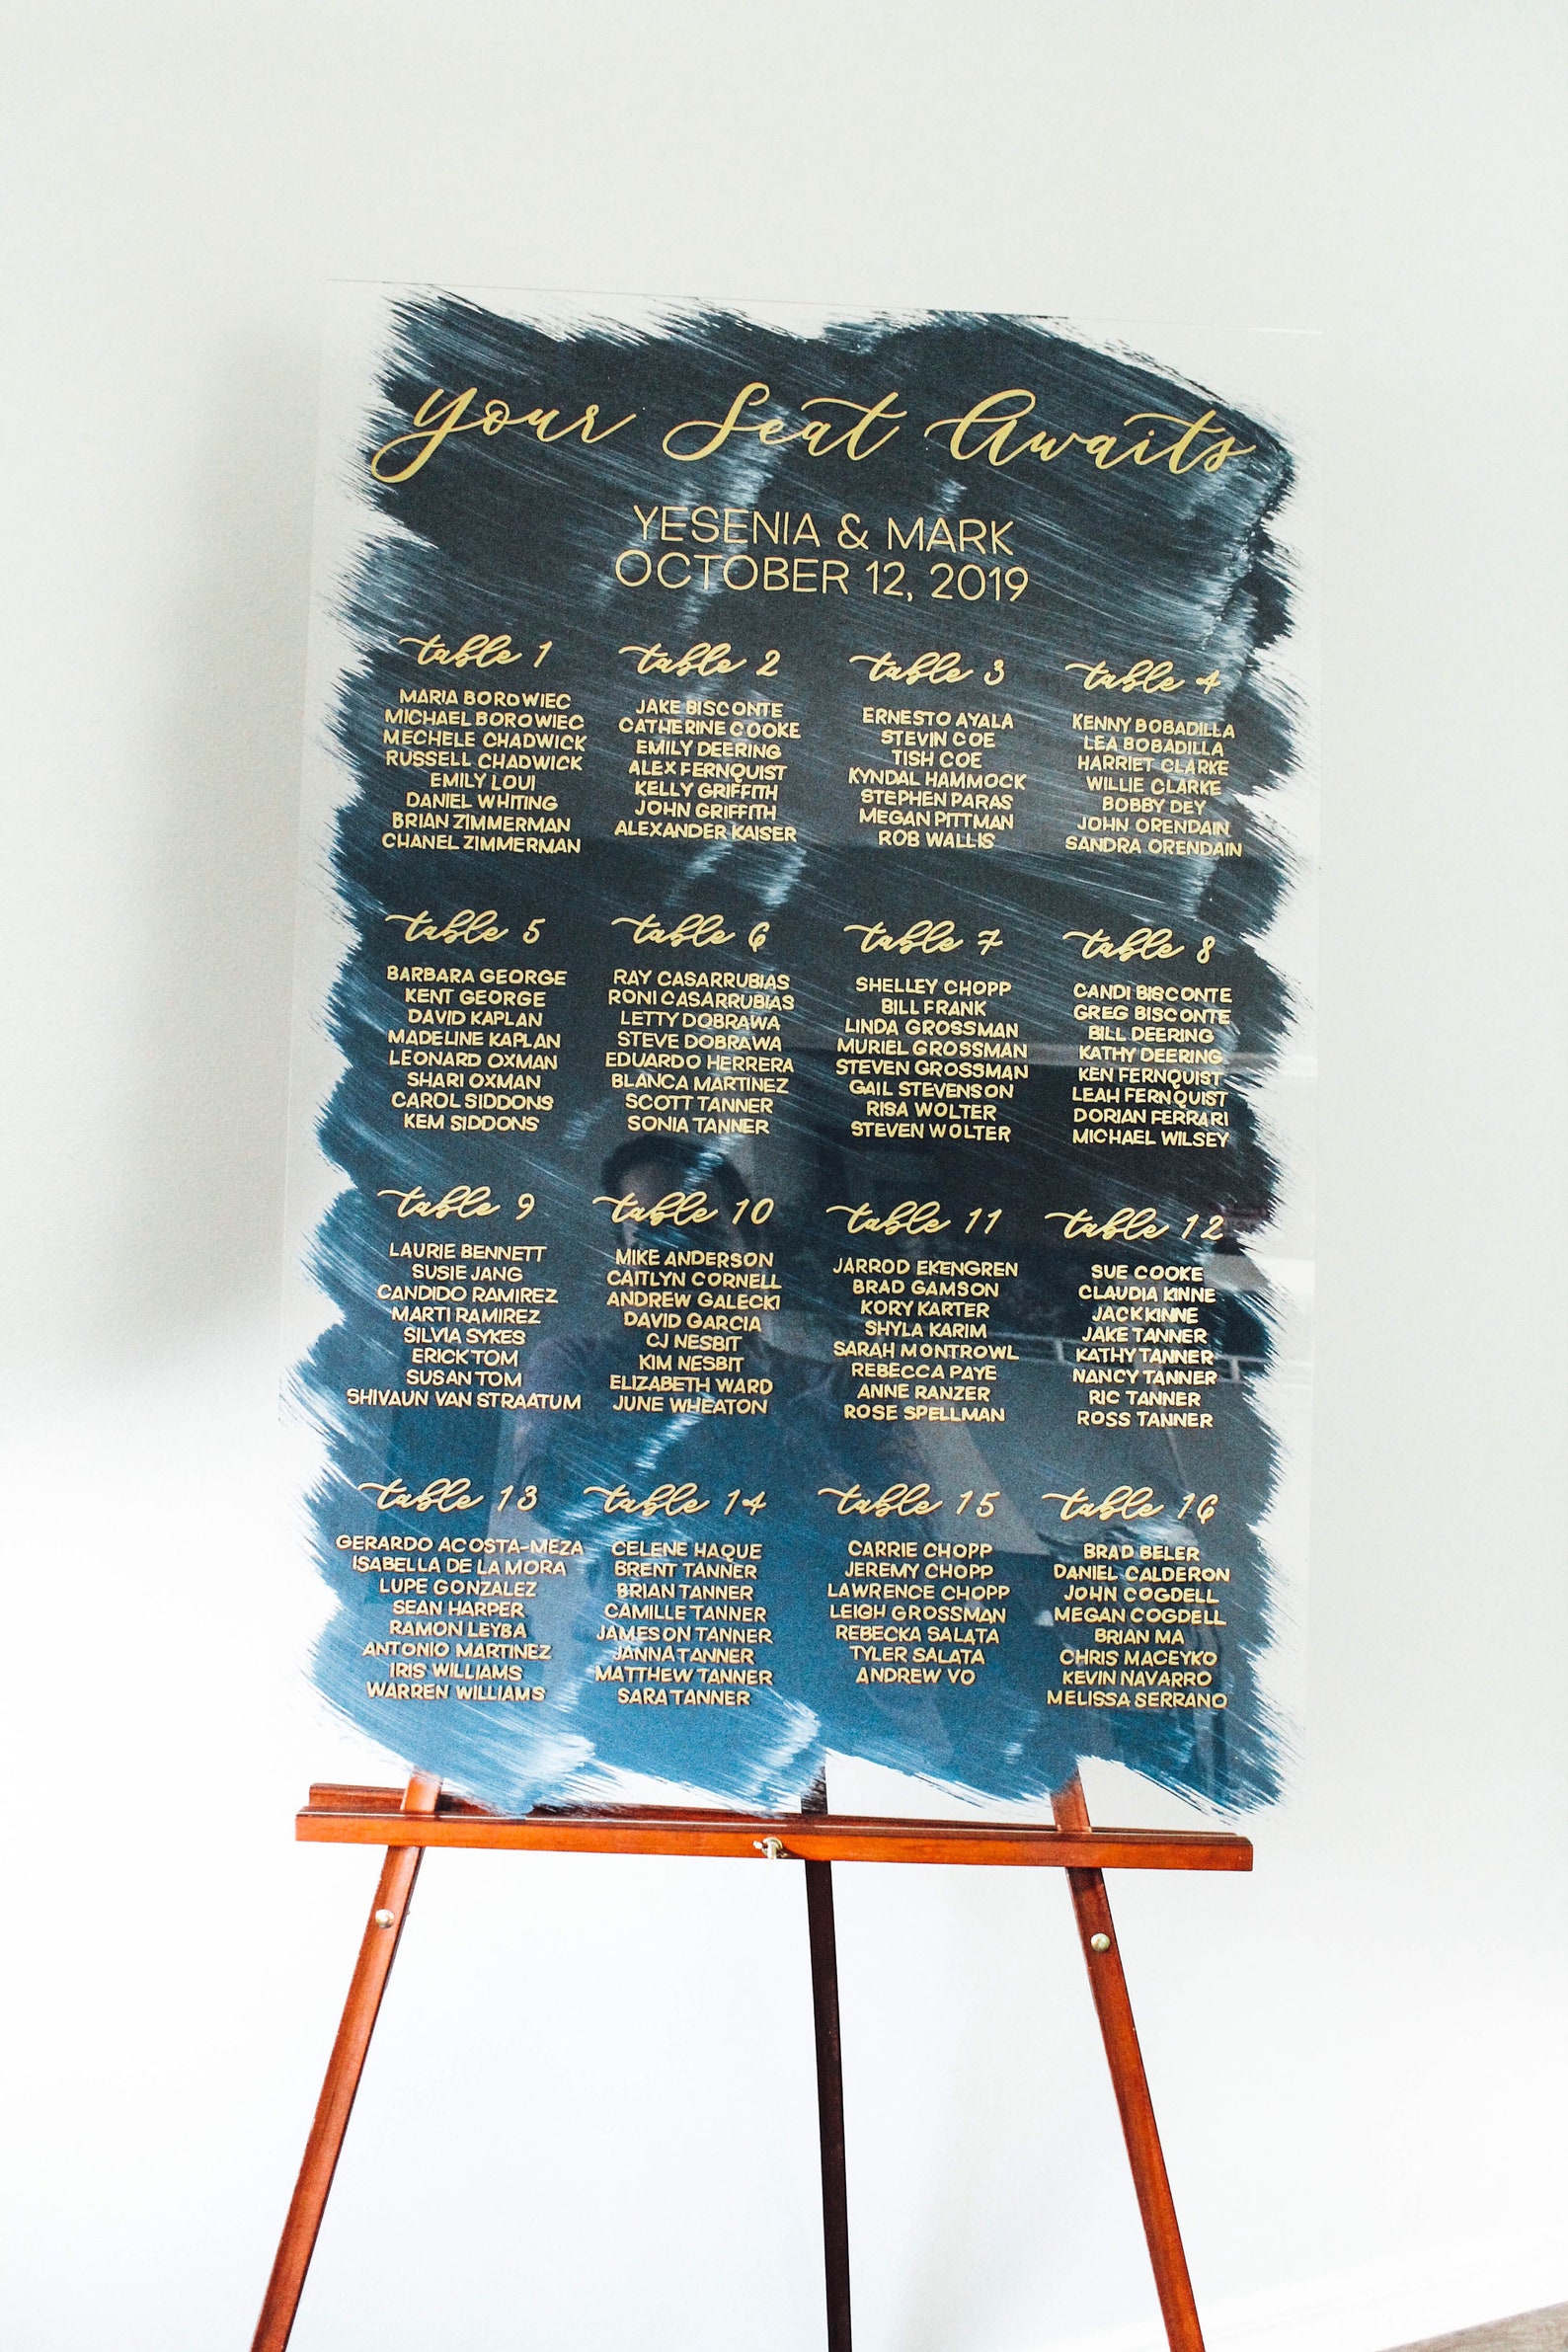 your Seat Awaits
YESENIA & MARK
OCTOBER 12, 2019
table 1
MARIA BOROWIEC
MICHAEL BOROWIEC
MECHELE CHADWICK
RUSSELL CHADWICK
EMILY LOUI
DANIEL WHITING
BRIAN ZIMMERMAN
CHANEL ZIMMERMAN
table 2
JAKE BISCONTE
CATHERINE COOKE
EMILY DEERING
ALEX FERNQUIST
KELLY GRIFFITH
JOHN GRIFFITH
ALEXANDER KAISER
table 3
ERNESTO AYALA
STEVIN COE
TISH COE
KYNDAL HAMMOCK
STEPHEN PARAS
MEGAN PITTMAN
ROB WALLIS
table 4
KENNY BOBADILLA
LEA BOBADILLA
HARRIET CLARKE
WILLIE CLARKE
BOBBY DEY
JOHN ORENDAIN
SANDRA ORENDAIN
table 5
BARBARA GEORGE
KENT GEORGE
DAVID KAPLAN
MADELINE KAPLAN
LEONARD OXMAN
SHARI OXMAN
CAROL SIDDONS
KEM SIDDONS
table 6
RAY CASARRUBIAS
RONI CASARRUBIAS
LETTY DOBRAWA
STEVE DOBRAWA
EDUARDO HERRERA
BLANCA MARTINEZ
SCOTT TANNER
SONIA TANNER
table 7
SHELLEY CHOPP
BILL FRANK
LINDA GROSSMAN
MURIEL GROSSMAN
STEVEN GROSSMAN
GAIL STEVENSON
RISA WOLTER
STEVEN WOLTER
table 8
CANDI BISCONTE
GREG BISCONTE
BILL DEERING
KATHY DEERING
KEN FERNQUIST
LEAH FERNQUIST
DORIAN FERRARI
MICHAEL WILSEY
table 9
LAURIE BENNETT
SUSIE JANG
CANDIDO RAMIREZ
MARTI RAMIREZ
SILVIA SYKES
ERICK TOM
SUSAN TOM
SHIVAUN VAN STRAATUM
table 10
MIKE ANDERSON
CAITLYN CORNELL
ANDREW GALECKI
DAVID GARCIA
CJ NESBIT
KIM NESBIT
ELIZABETH WARD
JUNE WHEATON
table 11
JARROD EKENGREN
BRAD GAMSON
KORY KARTER
SHYLA KARIM
SARAH MONTROWL
REBECCA PAYE
ANNE RANZER
ROSE SPELLMAN
table 12
SUE COOKE
CLAUDIA KINNE
JACK KINNE
JAKE TANNER
KATHY TANNER
NANCY TANNER
RIC TANNER
ROSS TANNER
table 13
GERARDO ACOSTA-MEZA
ISABELLA DE LA MORA
LUPE GONZALEZ
SEAN HARPER
RAMON LEYBA
ANTONIO MARTINEZ
IRIS WILLIAMS
WARREN WILLIAMS
table 14
CELENE HAQUE
BRENT TANNER
BRIAN TANNER
CAMILLE TANNER
JAMESON TANNER
JANNA TANNER
MATTHEW TANNER
SARA TANNER
table 15
CARRIE CHOPP
JEREMY CHOPP
LAWRENCE CHOPP
LEIGH GROSSMAN
REBECKA SALATA
TYLER SALATA
ANDREW VO
table 16
BRAD BELER
DANIEL CALDERON
JOHN COGDELL
MEGAN COGDELL
BRIAN MA
CHRIS MACEYKO
KEVIN NAVARRO
MELISSA SERRANO